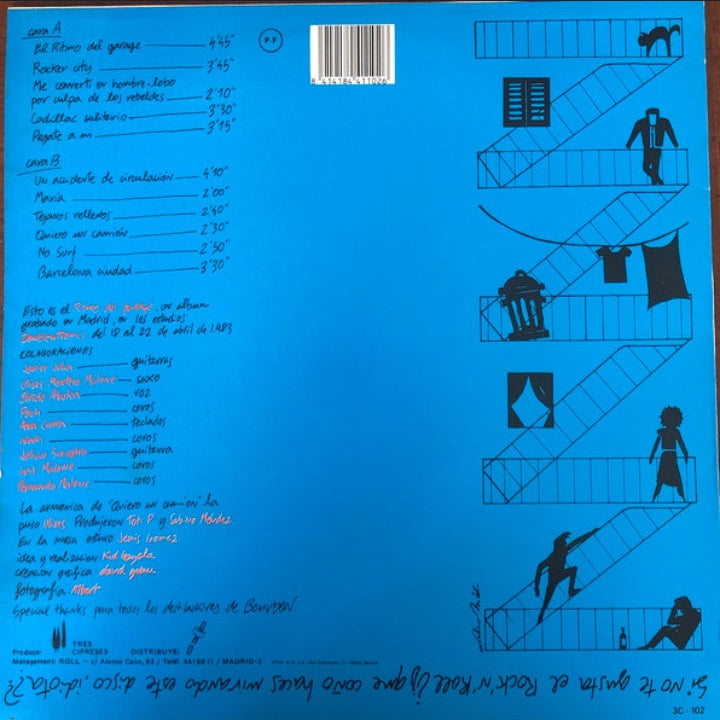 cara A
El Ritmo del garage 4'45"
Rocker city 3'45"
Me convertí en hombre-lobo
por culpa de los rebeldes 2'10"
Cadillac solitario 3'30"
Pégate a mi 3'15"
cara B
Un accidente de circulación 4'30"
María 2'00"
Tejanos rellenos 2'40"
Quiero un camión 2'30"
No Surf 2'50"
Barcelona ciudad 3'30"
P.F
8 414184 411026
Esto es el Ritmo del garage, un album
grabado en Madrid, en los estudios
Doubletronics del 18 al 22 de abril de 1.983
COLABORACIONES
Javier guitarras
Ulises Montero saxo
voz
coros
Ana Curra teclados
coros
Johan guitarra
Luis coros
Fernando coros
La armonica de "Quiero un camión" la
puso Ulises. Produjeron Toti P y Sabino Méndez
En la mesa estuvo Jesús Gomez
idea y realizacion Kid
creacion grafica: david
fotografía Albert
Special thanks para todos los destiladores de Bourbon
Produce: TRES CIPRESES DISTRIBUYE:
Management: ROLL - c/ Alonso Cano, 63 / Teléf. 441 98 11 / MADRID-3
Si NO te gusta el Rock'n'Roll ¿¡que coño haces mirando este disco, idiota?!
3C - 102